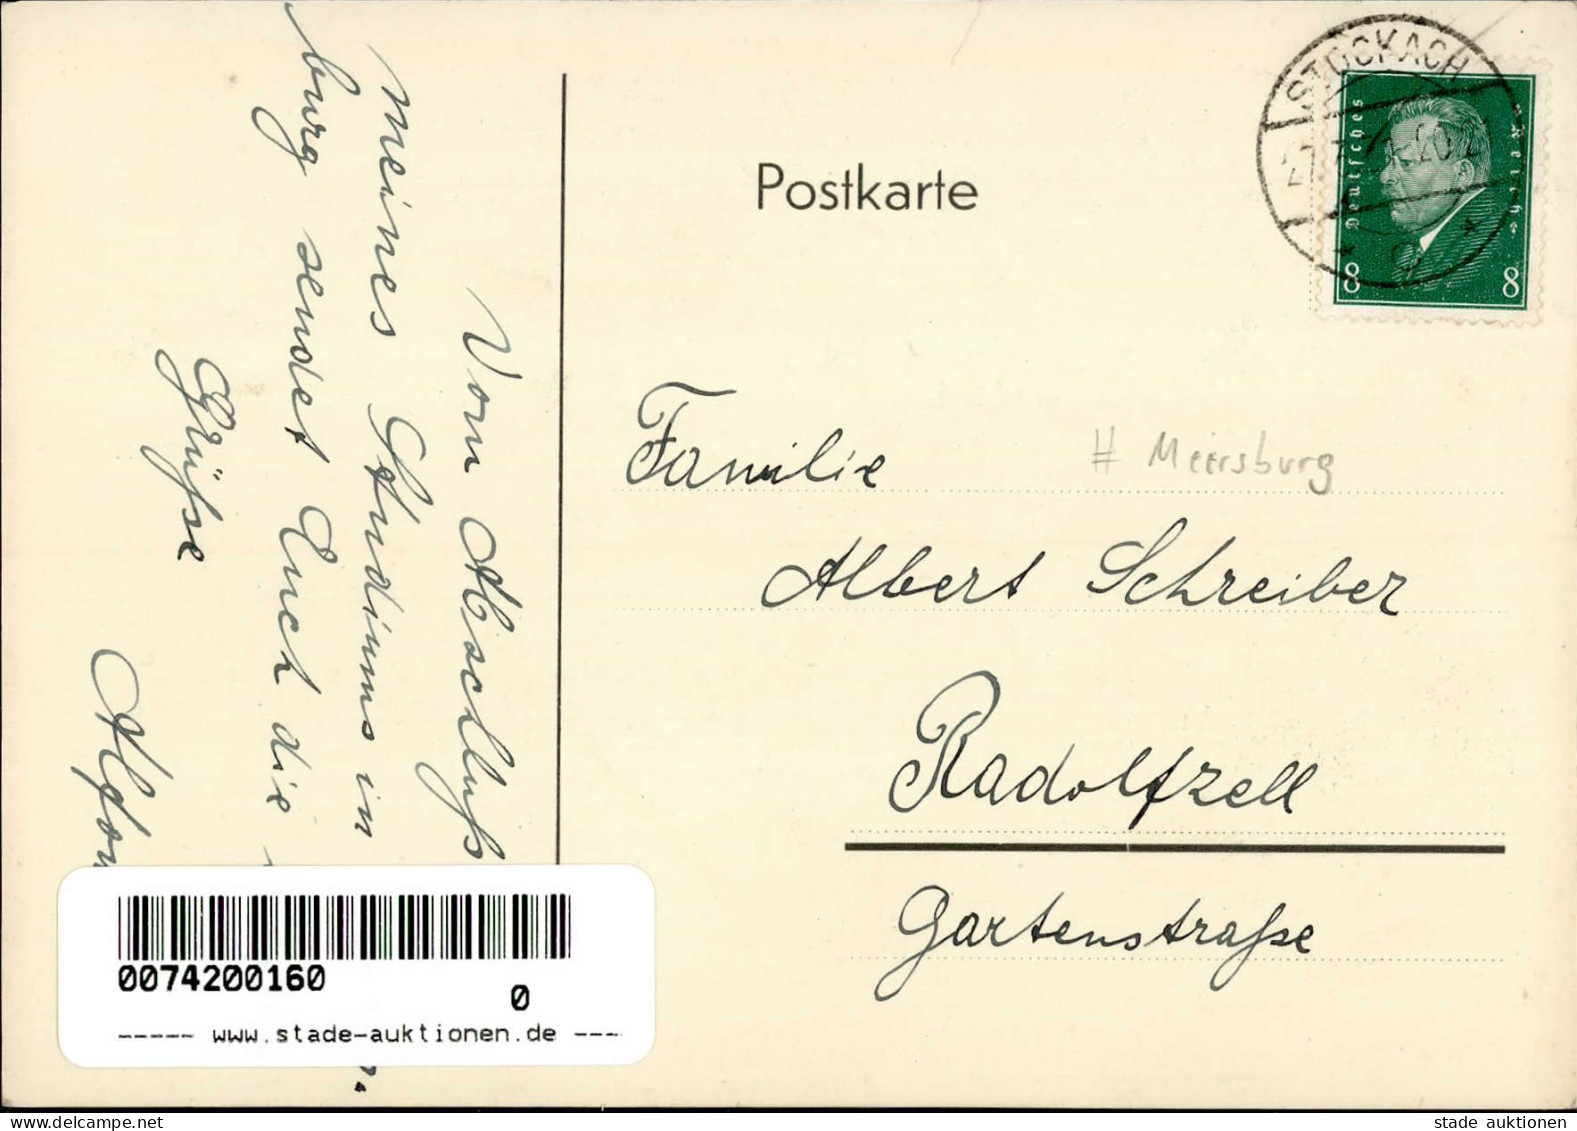 Vom Abschluß
meines Studiums in
burg sendet Euch die
Grüße
Postkarte
STOCKACH
Deutsches Reich
8 8
Familie
# Meersburg
Albert Schreiber
Radolfzell
Gartenstraße
0074200160
0
----- www.stade-auktionen.de ----
www.delcampe.net
stade auktionen